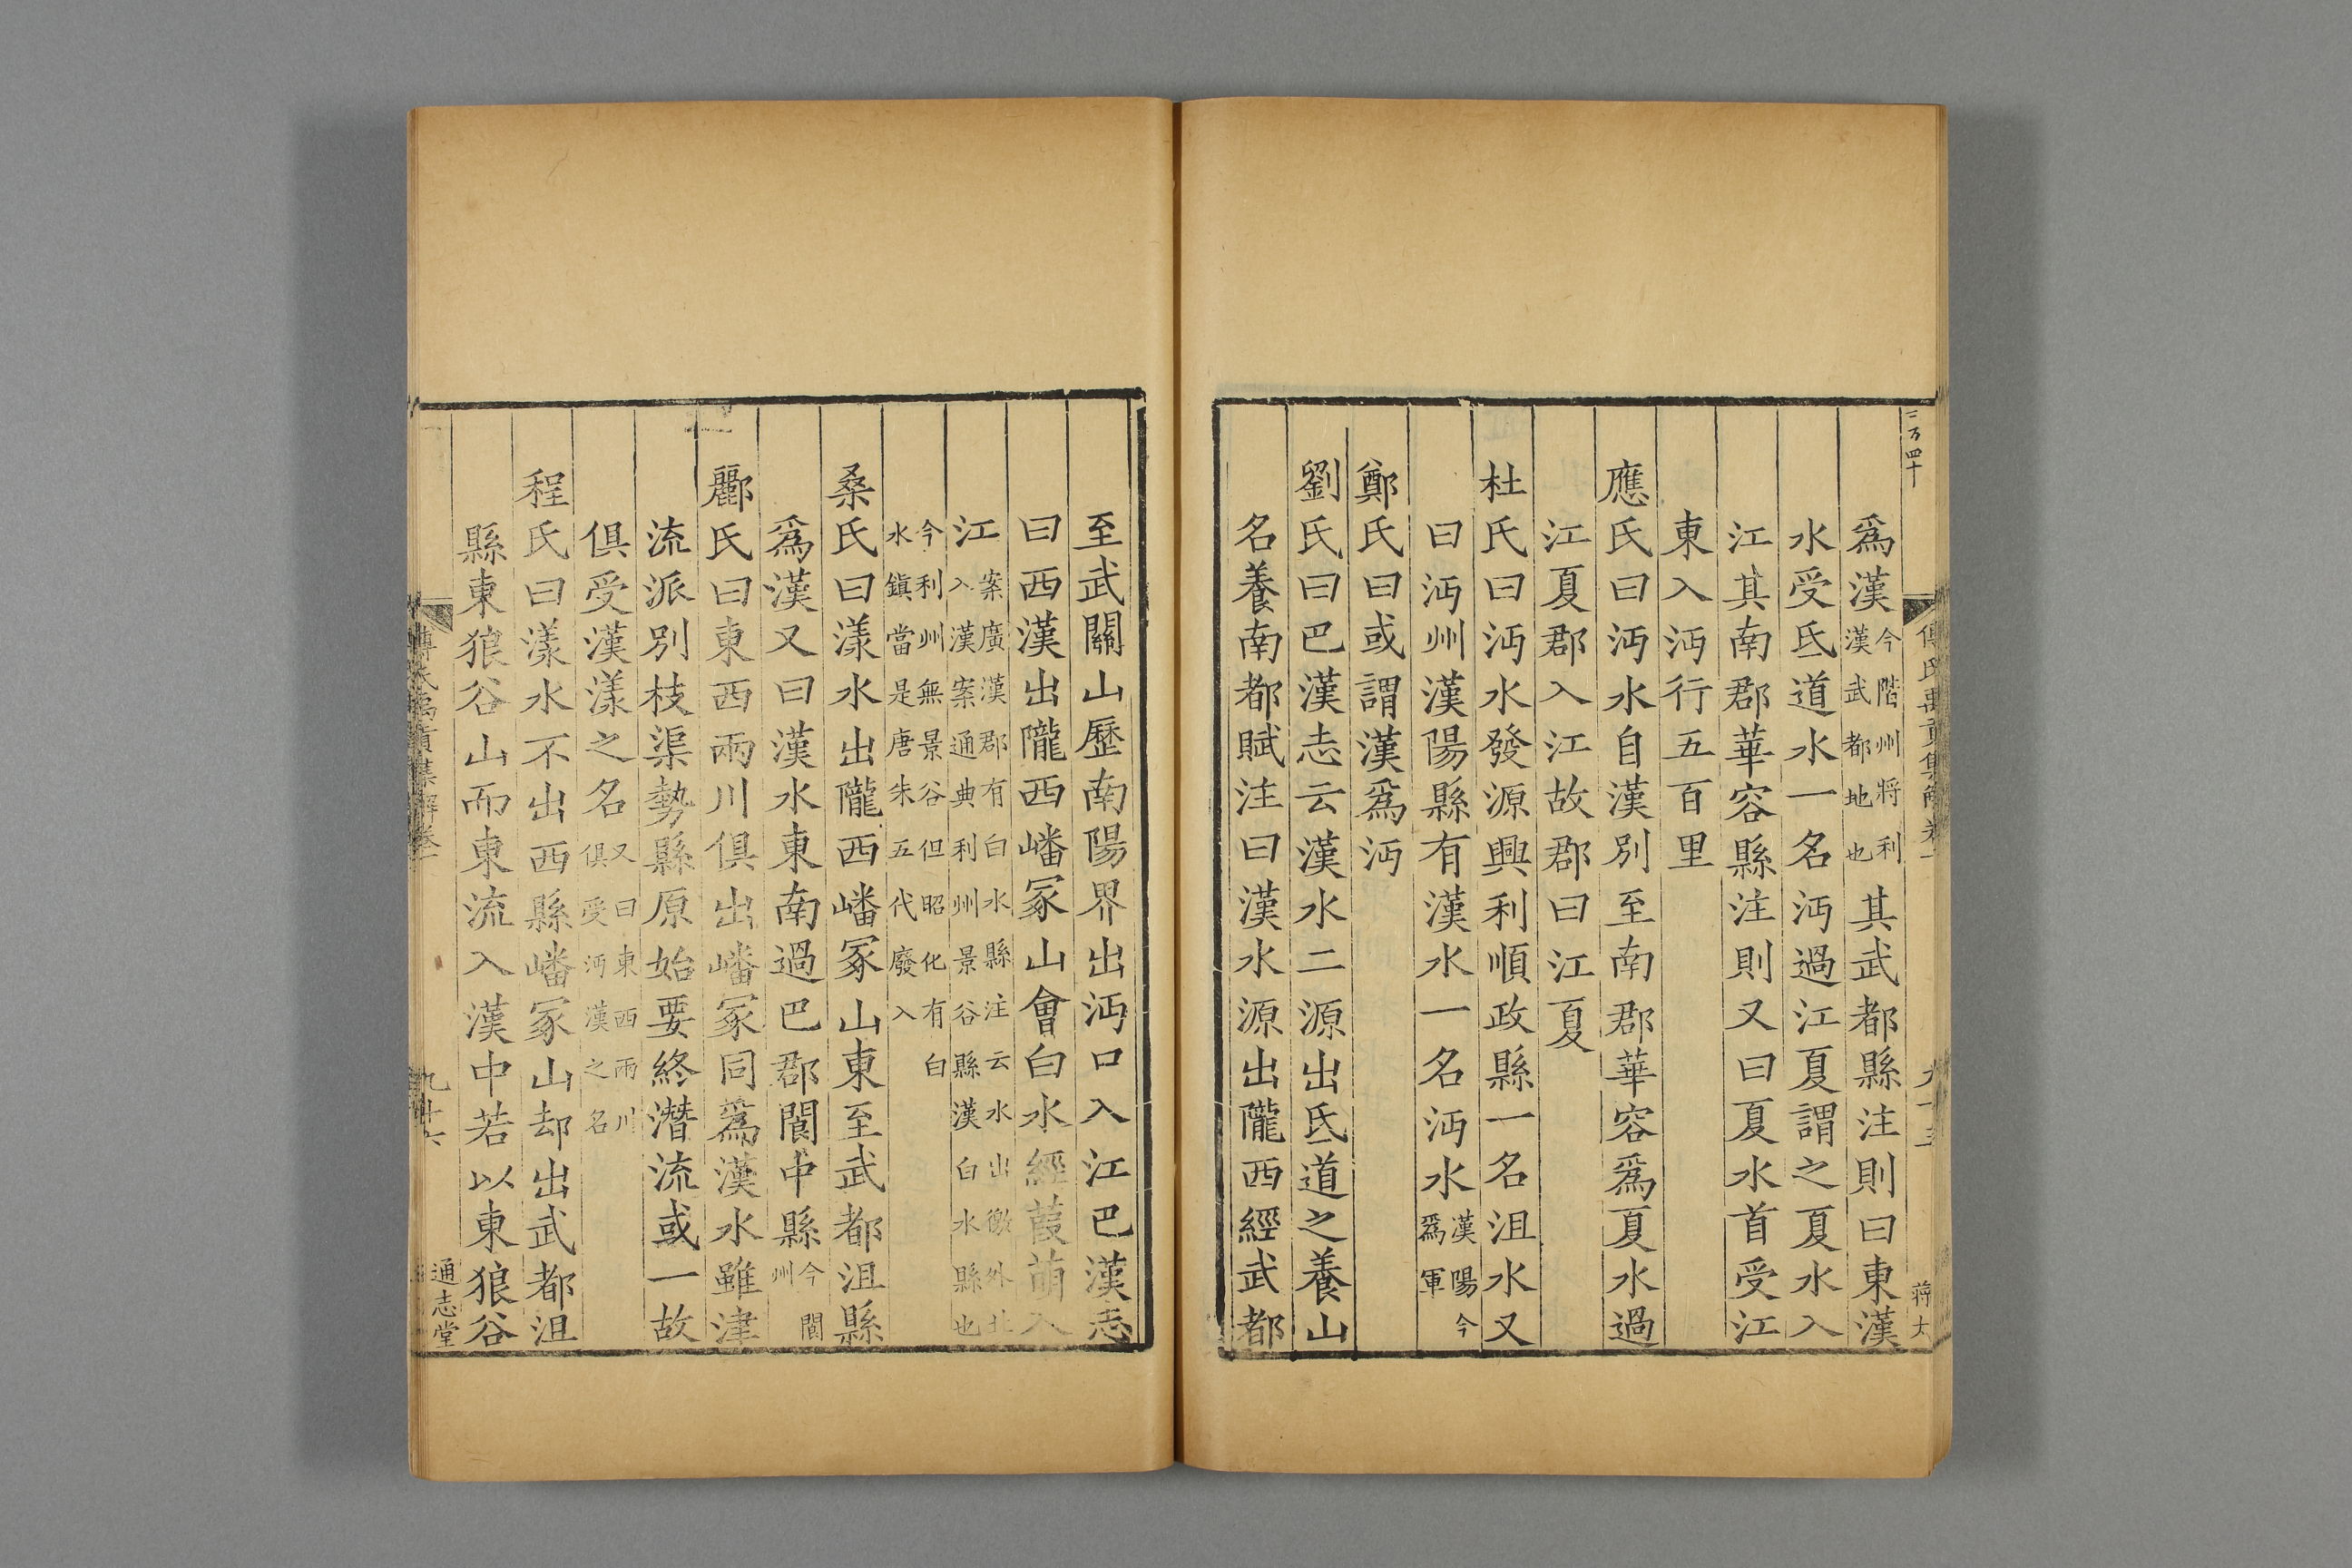 二百四十
爲漢今階州將利漢武都地也其武都縣注則曰東漢
水受氐道水一名沔過江夏謂之夏水入
江其南郡華容縣注則又曰夏水首受江
東入沔行五百里
應氏曰沔水自漢別至南郡華容爲夏水過
江夏郡入江故郡曰江夏
杜氏曰沔水發源興利順政縣一名沮水又
曰沔州漢陽縣有漢水一名沔水漢陽今爲軍
鄭氏曰或謂漢爲沔
劉氏曰巴漢志云漢水二源出氐道之養山
名養南都賦注曰漢水源出隴西經武都
蔣太
至武關山歷南陽界出沔口入江巴漢志
曰西漢出隴西嶓冢山會白水經葭萌入
江案廣漢郡有白水縣注云水出徼外北入漢案通典利州景谷縣漢白水縣也
今利州無景谷但昭化有白水鎮當是唐朱五代廢入
桑氏曰漾水出隴西嶓冢山東至武都沮縣
爲漢又曰漢水東南過巴郡閬中縣今閬州
酈氏曰東西兩川俱出嶓冢同爲漢水雖津
流派別枝渠勢縣原始要終潛流或一故
俱受漢漾之名又曰東西兩川俱受沔漢之名
程氏曰漾水不出西縣嶓冢山却出武都沮
縣東狼谷山而東流入漢中若以東狼谷
傅氏禹貢集解卷一
九十六
通志堂